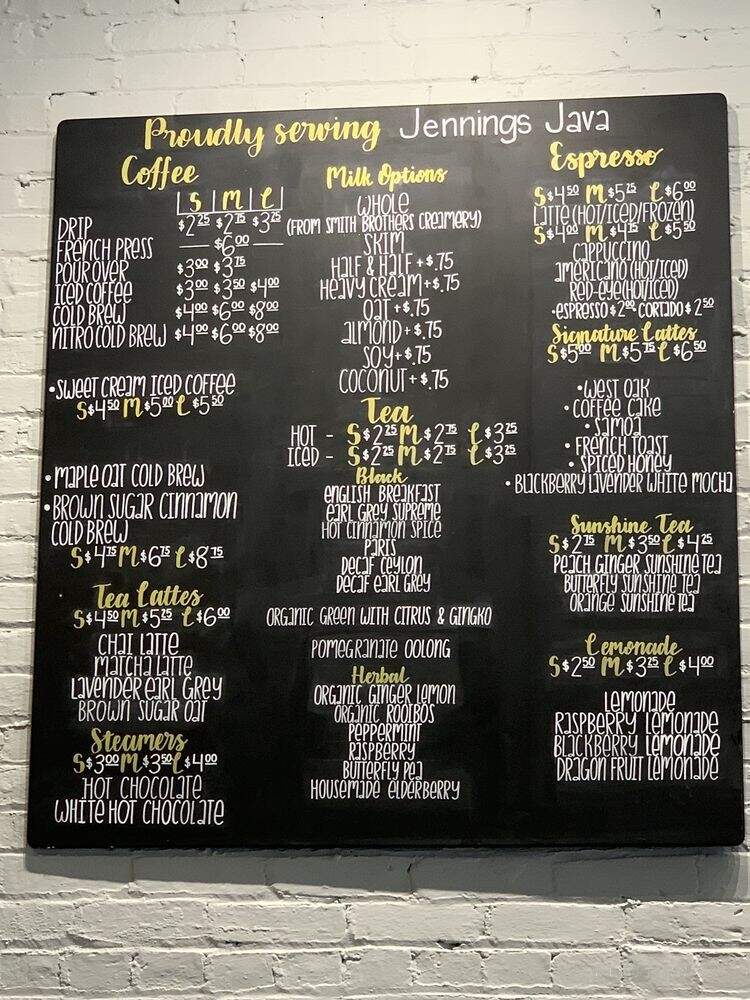 Proudly serving Jennings Java
Coffee
S M L
DRIP $2.25 $2.75 $3.25
FRENCH PRESS — $6.00 —
POUR OVER $3.00 $3.75
ICED COFFEE $3.00 $3.50 $4.00
COLD BREW $4.00 $6.00 $8.00
NITRO COLD BREW $4.00 $6.00 $8.00
•SWEET CREAM ICED COFFEE
S$4.50 M$5.00 L$5.50
•MAPLE OAT COLD BREW
•BROWN SUGAR CINNAMON
COLD BREW
S$4.75 M$6.75 L$8.75
Tea Lattes
S$4.50 M$5.25 L$6.00
CHAI LATTE
MATCHA LATTE
LAVENDER EARL GREY
BROWN SUGAR OAT
Steamers
S$3.00 M$3.50 L$4.00
HOT CHOCOLATE
WHITE HOT CHOCOLATE
Milk Options
WHOLE
(FROM SMITH BROTHERS CREAMERY)
SKIM
HALF & HALF +$.75
HEAVY CREAM +$.75
OAT +$.75
ALMOND +$.75
SOY +$.75
COCONUT +$.75
Tea
HOT - S$2.25 M$2.75 L$3.25
ICED - S$2.25 M$2.75 L$3.25
Black
ENGLISH BREAKFAST
EARL GREY SUPREME
HOT CINNAMON SPICE
PARIS
DECAF CEYLON
DECAF EARL GREY
ORGANIC GREEN WITH CITRUS & GINGKO
POMEGRANATE OOLONG
Herbal
ORGANIC GINGER LEMON
ORGANIC ROOIBOS
PEPPERMINT
RASPBERRY
BUTTERFLY PEA
HOUSEMADE ELDERBERRY
Espresso
S$4.50 M$5.25 L$6.00
LATTE (HOT/ICED/FROZEN)
S$4.00 M$4.75 L$5.50
CAPPUCCINO
AMERICANO (HOT/ICED)
RED-EYE (HOT/ICED)
•ESPRESSO $2.00 CORTADO $2.50
Signature Lattes
S$5.00 M$5.75 L$6.50
•WEST OAK
•COFFEE CAKE
•SAMOA
•FRENCH TOAST
•SPICED HONEY
•BLACKBERRY LAVENDER WHITE MOCHA
Sunshine Tea
S$2.75 M$3.50 L$4.25
PEACH GINGER SUNSHINE TEA
BUTTERFLY SUNSHINE TEA
ORANGE SUNSHINE TEA
Lemonade
S$2.50 M$3.25 L$4.00
LEMONADE
RASPBERRY LEMONADE
BLACKBERRY LEMONADE
DRAGON FRUIT LEMONADE